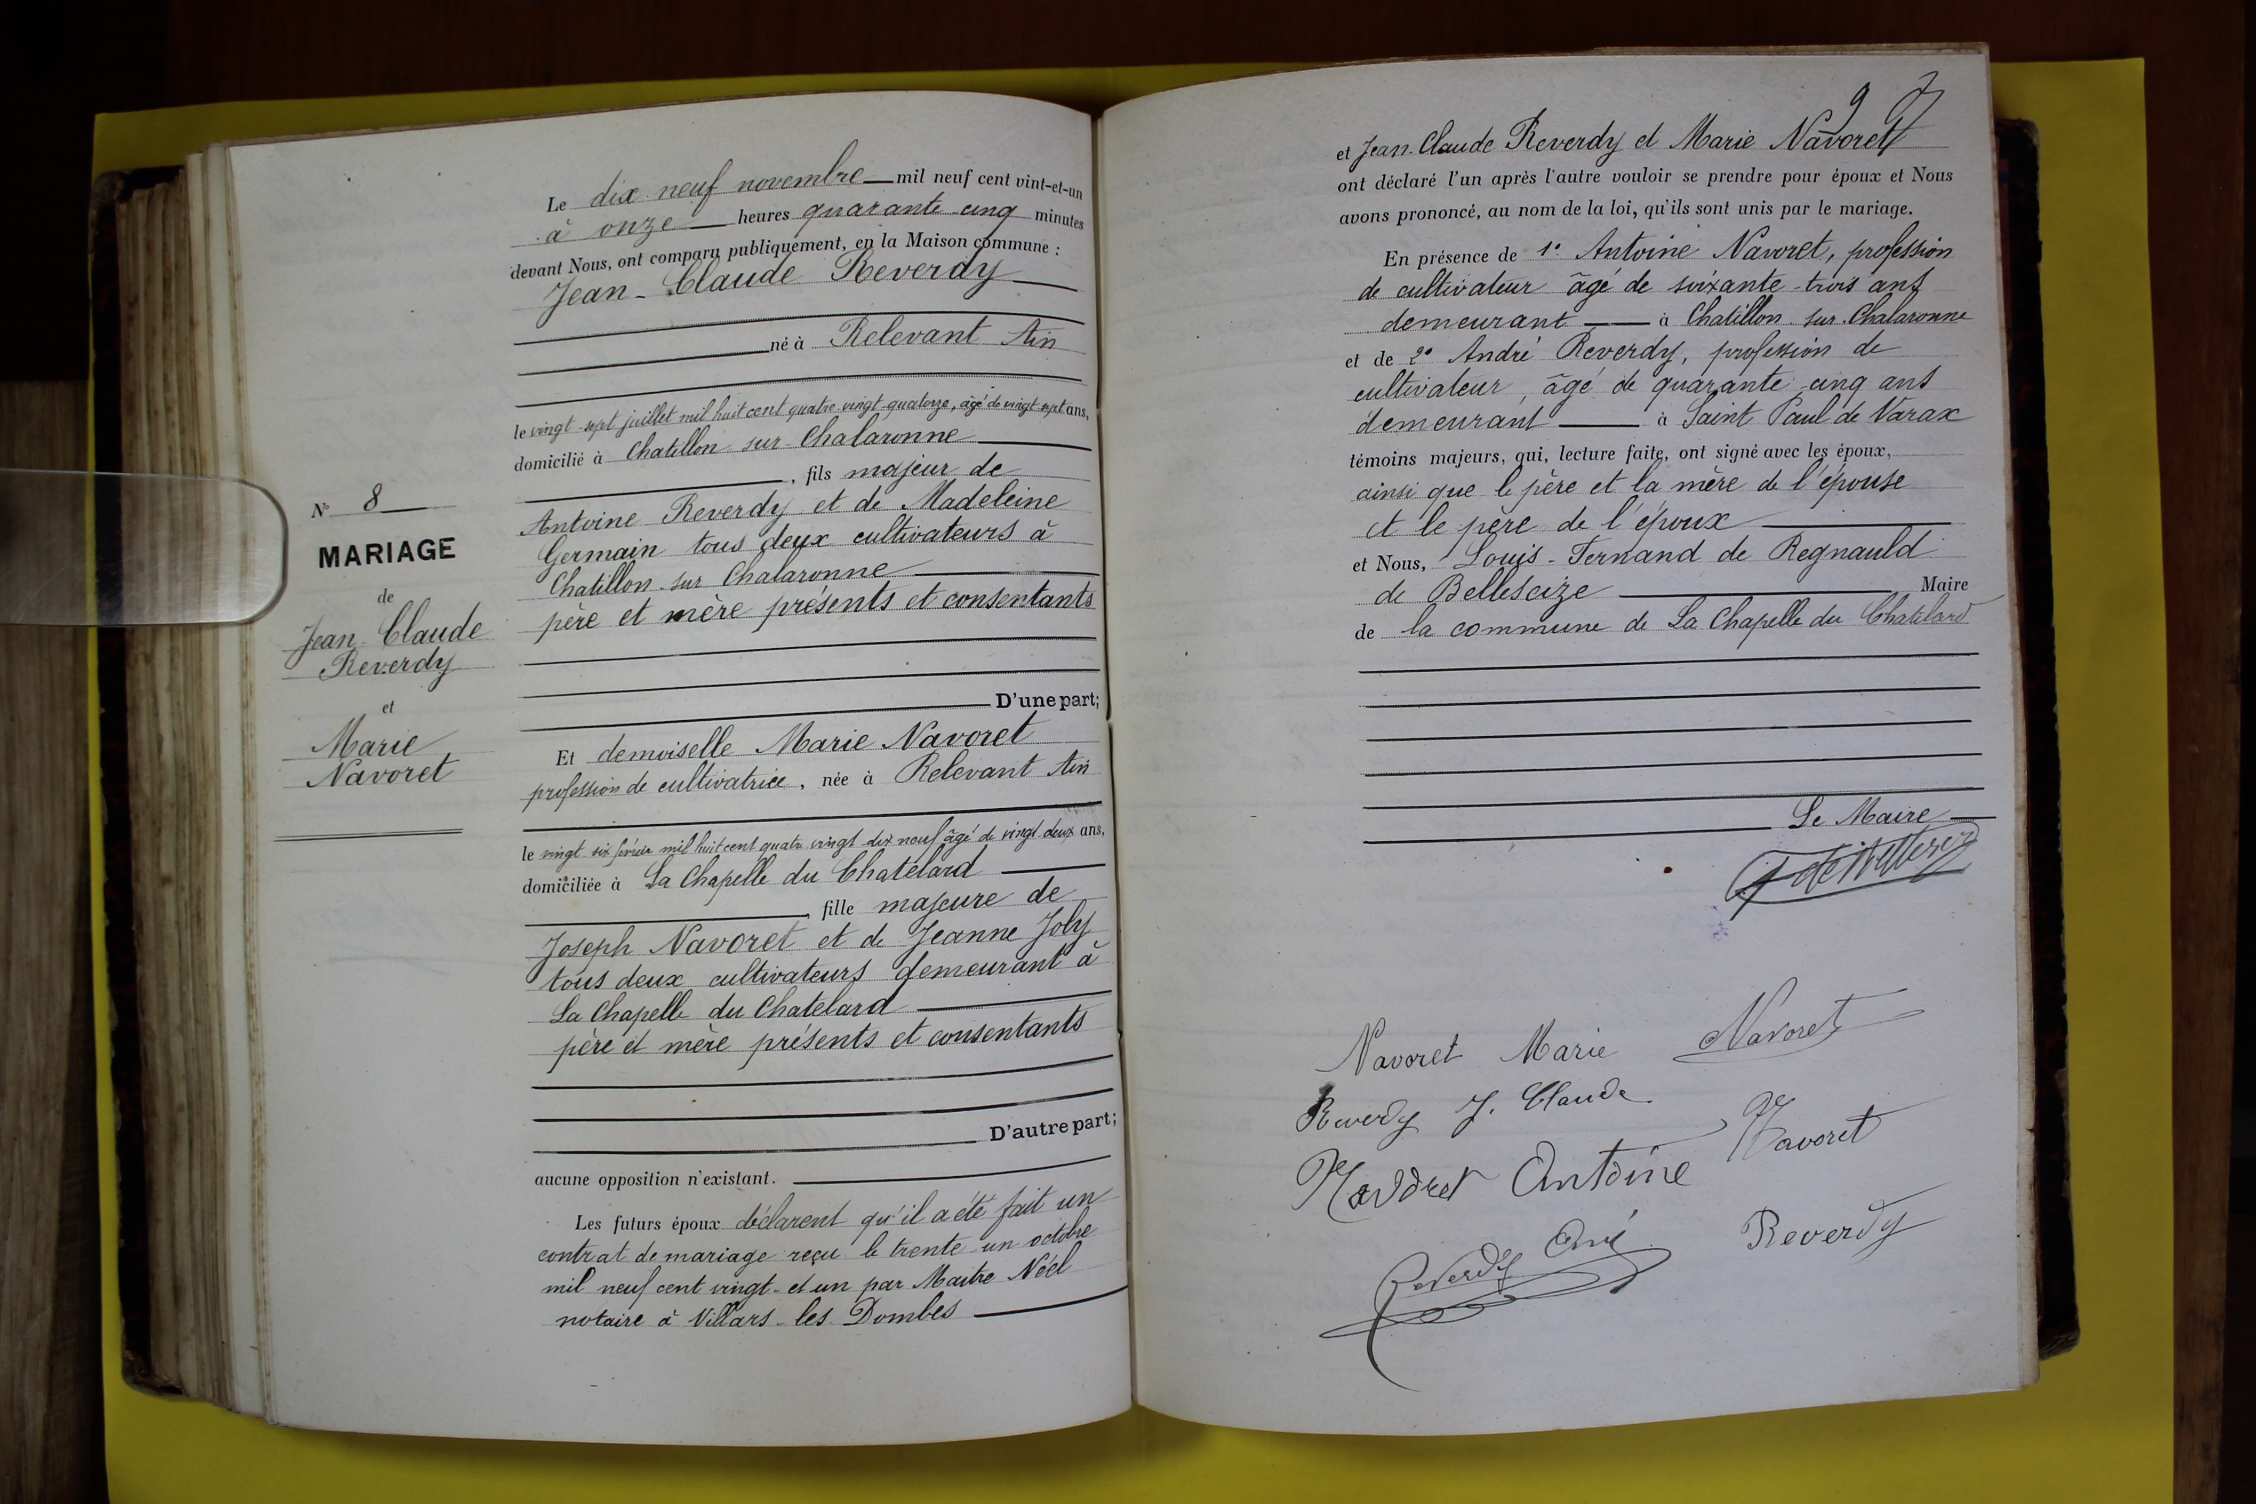 N° 8
MARIAGE
de
Jean-Claude
Reverdy
et
Marie
Navoret
Le dix neuf novembre mil neuf cent vint-et-un
à onze heures quarante cinq minutes
devant Nous, ont comparu publiquement, en la Maison commune :
Jean-Claude Reverdy
né à Relevant Ain
le vingt-sept juillet mil huit cent quatre vingt quatorze, âgé de vingt-sept ans,
domicilié à Chatillon sur Chalaronne
, fils majeur de
Antoine Reverdy et de Madeleine
Germain tous deux cultivateurs à
Chatillon sur Chalaronne
père et mère présents et consentants
D'une part;
Et demoiselle Marie Navoret
profession de cultivatrice, née à Relevant Ain
le vingt six février mil huit cent quatre vingt dix neuf âgé de vingt-deux ans,
domiciliée à La Chapelle du Chatelard
, fille majeure de
Joseph Navoret et de Jeanne Joly
tous deux cultivateurs demeurant à
La Chapelle du Chatelard
père et mère présents et consentants
D'autre part;
aucune opposition n'existant.
Les futurs époux déclarent qu'il a été fait un
contrat de mariage reçu le trente-un octobre
mil neuf cent vingt-et un par Maître Néel
notaire à Villars-les Dombes
9
et Jean-Claude Reverdy et Marie Navoret
ont déclaré l'un après l'autre vouloir se prendre pour époux et Nous
avons prononcé, au nom de la loi, qu'ils sont unis par le mariage.
En présence de 1° Antoine Navoret, profession
de cultivateur âgé de soixante-trois ans
demeurant à Chatillon sur Chalaronne
et de 2° André Reverdy, profession de
cultivateur, âgé de quarante cinq ans
demeurant à Saint Paul de Varax
témoins majeurs, qui, lecture faite, ont signé avec les époux,
ainsi que le père et la mère de l'épouse
et le père de l'époux
et Nous, Louis-Fernand de Regnauld
de Bellescize Maire
de la commune de La Chapelle du Chatelard
Le Maire
Navoret Marie Navoret
Reverdy J. Claude
Navoret
Navoret Antoine
Reverdy
Reverdy